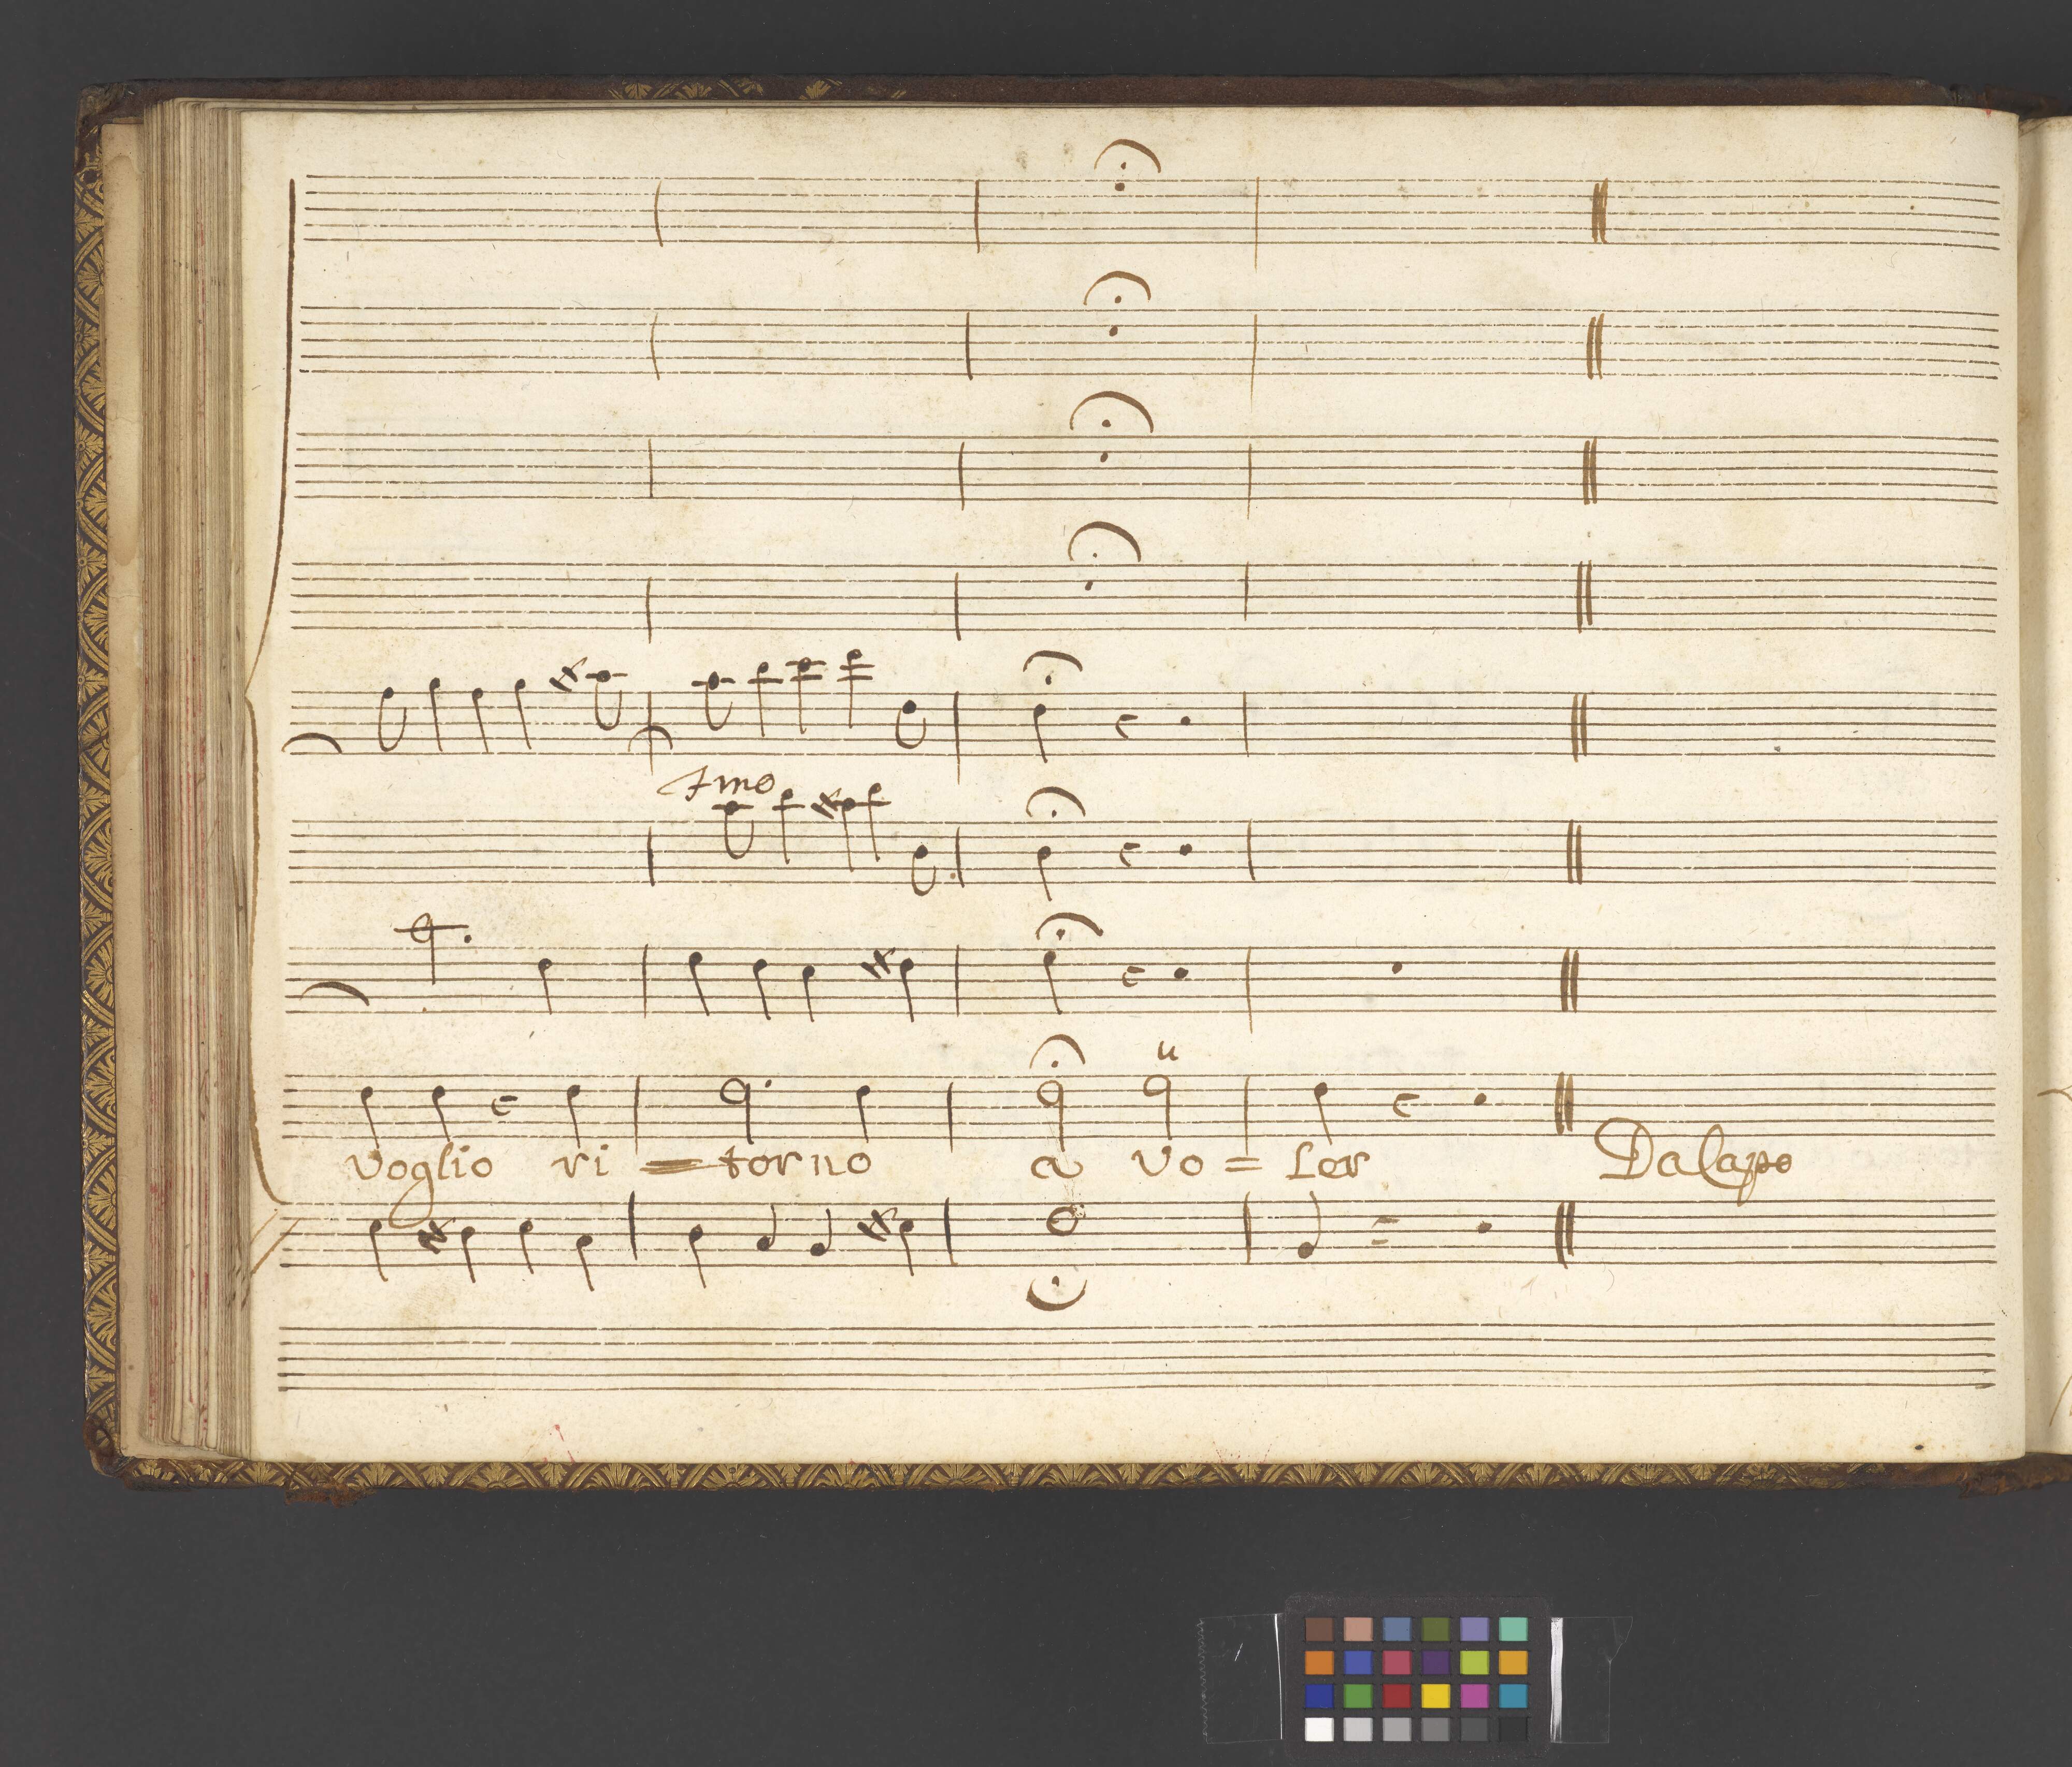 Fmo
voglio ri = torno a vo = ler Da Capo